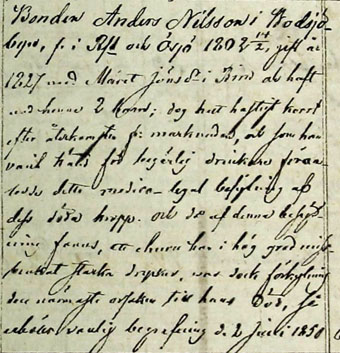 Bonden Anders Nilsson i Stodsjö
byn, f. i Rst och Ösjö 1802 14/2, gift år
1827 med Märet Jönsd i Rörön och haft
med henne 2 barn; dog helt hastigt kort
efter återkomsten fr: marknaden, och som han
varit känd för begärlig drinkare föran
ledde detta medico-legal besigtning af
dess döda kropp. och då af denna besigt
ning fanns, att ehuru han i hög grad miss
brukat starka drycker, var dock förkylning
den närmaste orsaken till hans död, så
erhölls vanlig begrafning d. 2 Juni 1850